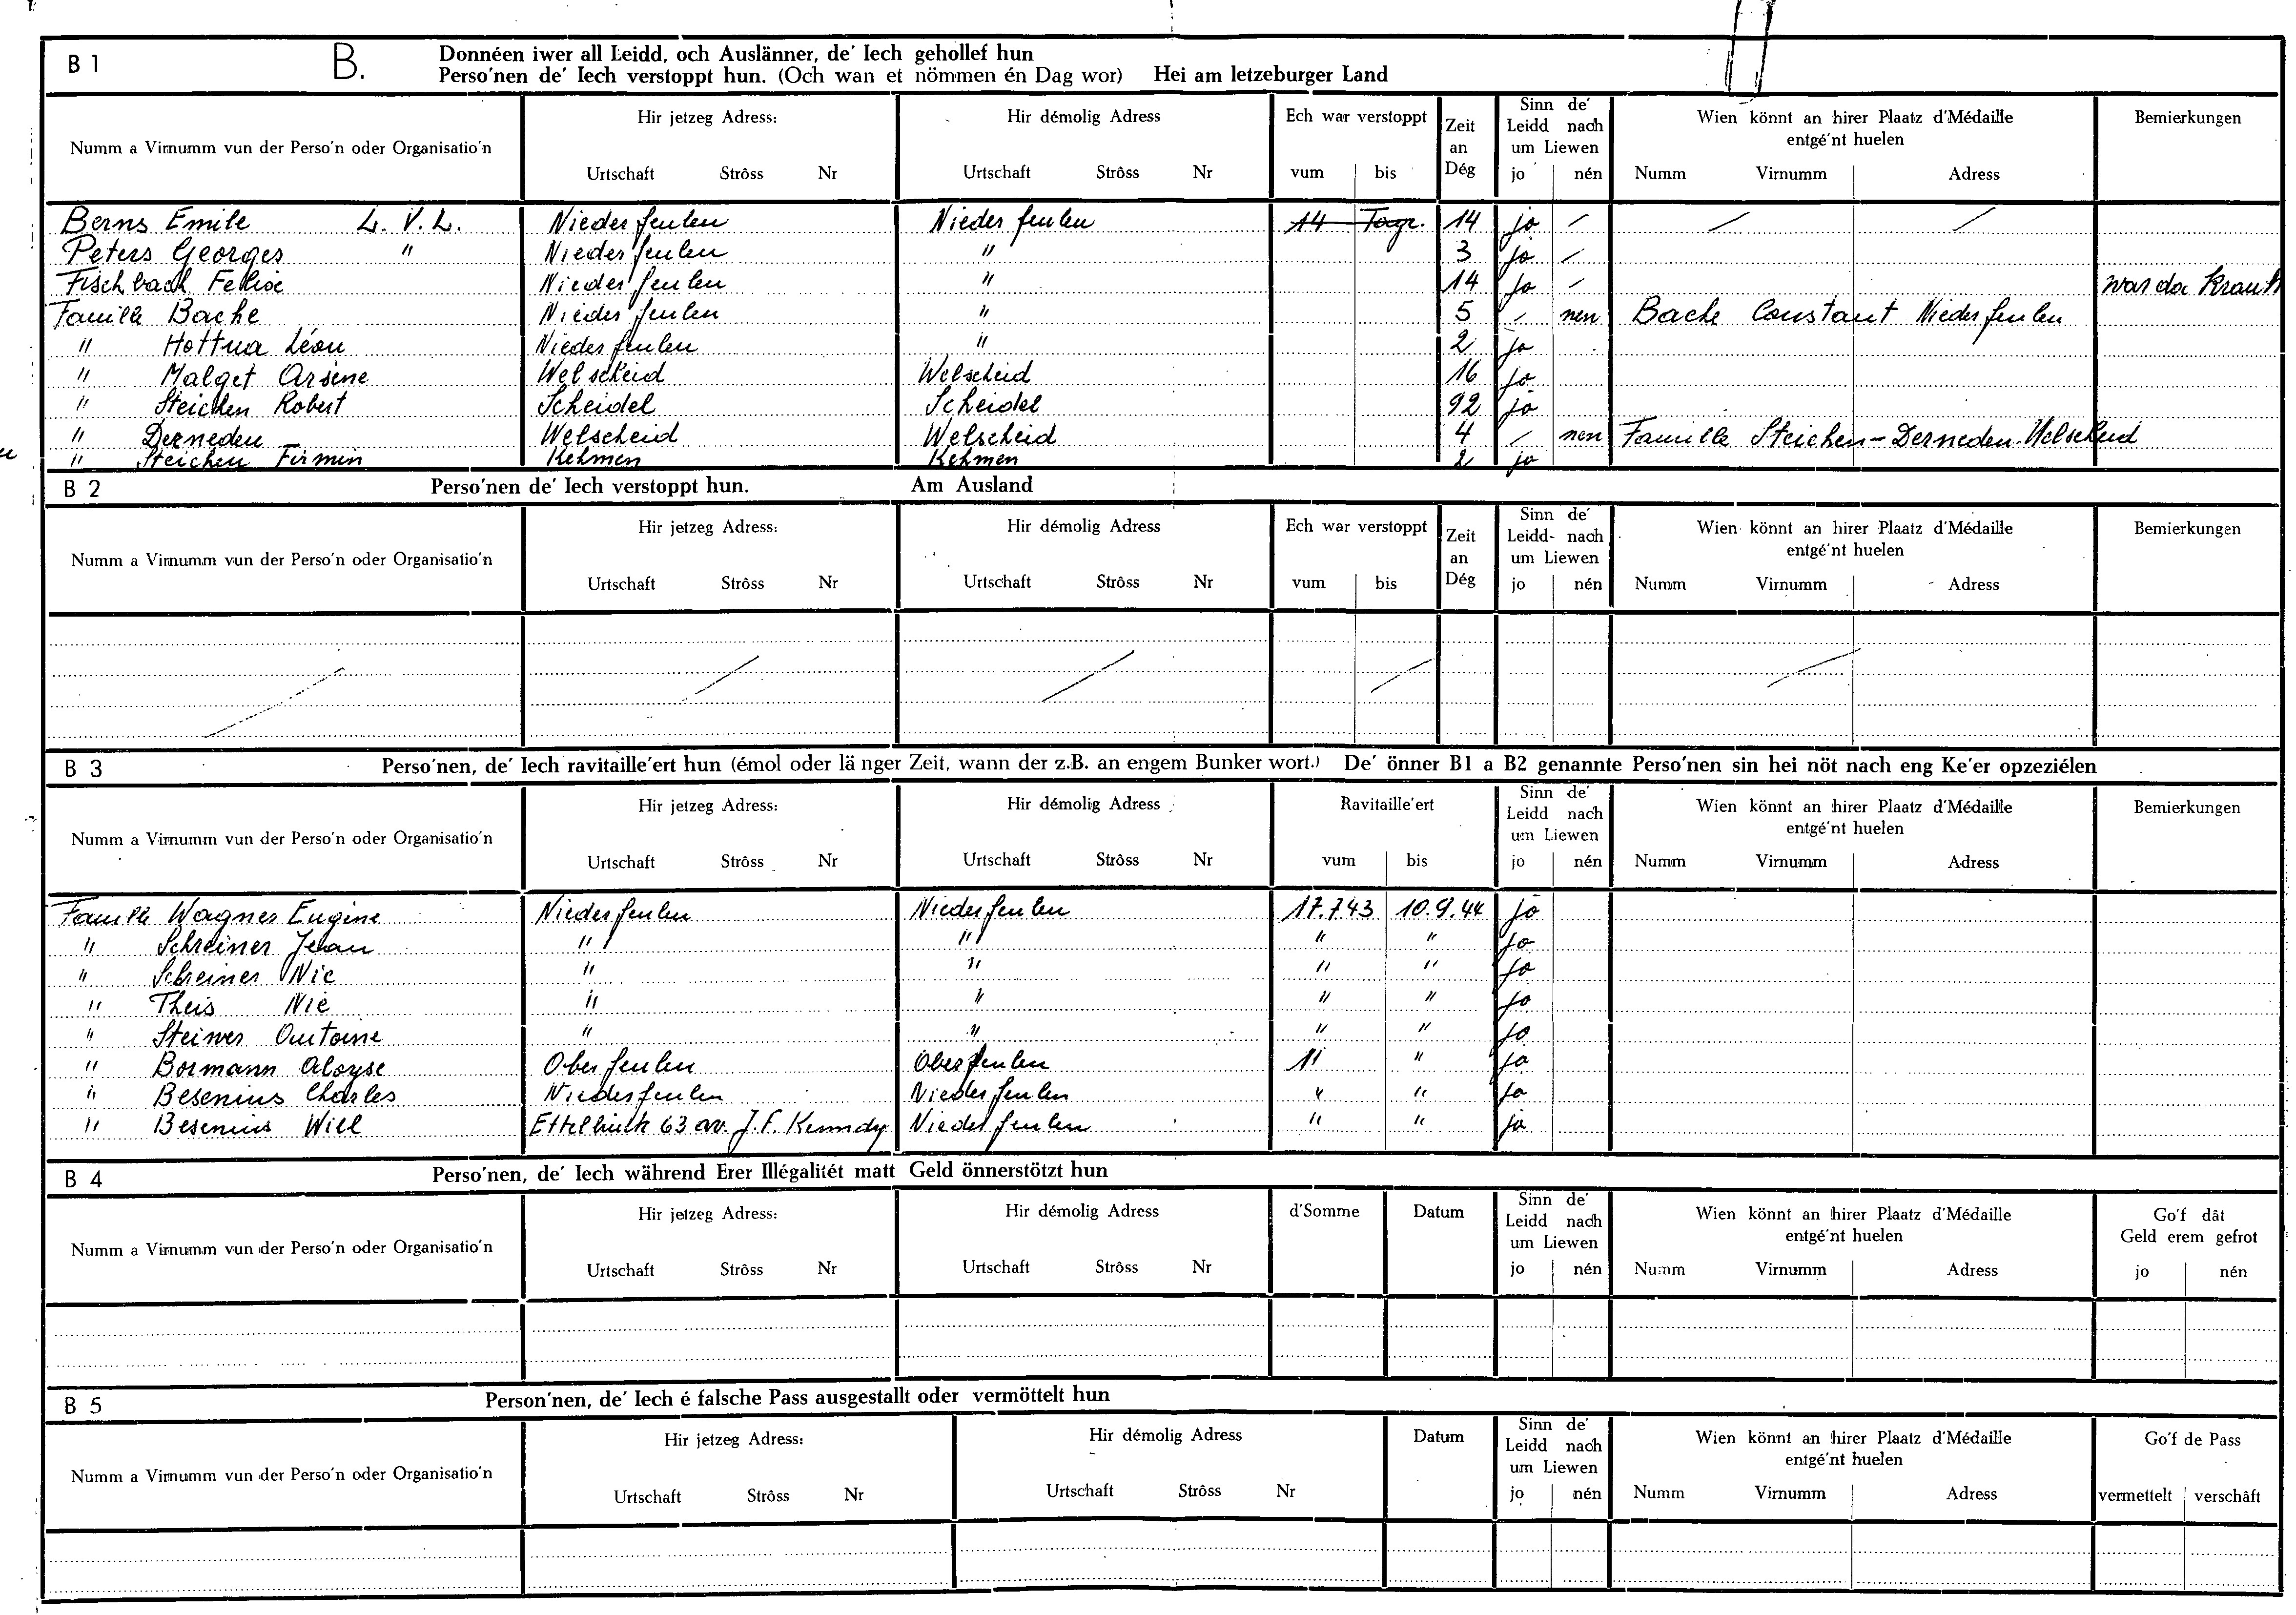 B 1 B. Donnéen iwer all Leidd, och Auslänner, de' Iech gehollef hun
Perso'nen de' Iech verstoppt hun. (Och wan et nömmen én Dag wor) Hei am letzeburger Land
Numm a Virnumm vun der Perso'n oder Organisatio'n Hir jetzeg Adress: Urtschaft Strôss Nr Hir démolig Adress Urtschaft Strôss Nr Ech war verstoppt vum bis Zeit an Dég Sinn de' Leidd nach um Liewen jo nén Wien könnt an hirer Plaatz d'Médaille entgé'nt huelen Numm Virnumm Adress Bemierkungen
Berns Emile L. V. L. Niederfeulen Niederfeulen 14 Tage. 14 jo / / /
Peters Georges " Niederfeulen " 3 jo /
Fischbach Felixe Niederfeulen " 14 jo / war da krank
Famille Bache Niederfeulen " 5 / nen Bache Constant Niederfeulen
" Hottua Léon Niederfeulen " 2 jo
" Malget Arsène Welscheid Welscheid 16 jo
" Steichen Robert Scheidel Scheidel 92 jo
" Derneden Welscheid Welscheid 4 / nen Famille Steichen-Derneden Welscheid
" Steichen Firmin Kehmen Kehmen 2 jo
B 2 Perso'nen de' Iech verstoppt hun. Am Ausland
Numm a Virnumm vun der Perso'n oder Organisatio'n Hir jetzeg Adress: Urtschaft Strôss Nr Hir démolig Adress Urtschaft Strôss Nr Ech war verstoppt vum bis Zeit an Dég Sinn de' Leidd nach um Liewen jo nén Wien könnt an hirer Plaatz d'Médaille entgé'nt huelen Numm Virnumm Adress Bemierkungen
B 3 Perso'nen, de' Iech ravitaille'ert hun (émol oder länger Zeit, wann der z.B. an engem Bunker wort.) De' önner B1 a B2 genannte Perso'nen sin hei nöt nach eng Ke'er opzeziélen
Numm a Virnumm vun der Perso'n oder Organisatio'n Hir jetzeg Adress: Urtschaft Strôss Nr Hir démolig Adress Urtschaft Strôss Nr Ravitaille'ert vum bis Sinn de' Leidd nach um Liewen jo nén Wien könnt an hirer Plaatz d'Médaille entgé'nt huelen Numm Virnumm Adress Bemierkungen
Famille Wagner Eugène Niederfeulen Niederfeulen 17.7.43 10.9.44 jo
" Schreiner Jean " " " " jo
" Schreiner Nic " " " " jo
" Theis Nic " " " " jo
" Steiwer Antoine " " " " jo
" Bormann Aloyse Oberfeulen Oberfeulen " " jo
" Besenius Charles Niederfeulen Niederfeulen " " jo
" Besenius Will Ettelbück 63 av. J.F. Kennedy Niederfeulen " " jo
B 4 Perso'nen, de' Iech während Erer Illégalitét matt Geld önnerstötzt hun
Numm a Virnumm vun der Perso'n oder Organisatio'n Hir jetzeg Adress: Urtschaft Strôss Nr Hir démolig Adress Urtschaft Strôss Nr d'Somme Datum Sinn de' Leidd nach um Liewen jo nén Wien könnt an hirer Plaatz d'Médaille entgé'nt huelen Numm Virnumm Adress Go'f dât Geld erem gefrot jo nén
B 5 Person'nen, de' Iech é falsche Pass ausgestallt oder vermöttelt hun
Numm a Virnumm vun der Perso'n oder Organisatio'n Hir jetzeg Adress: Urtschaft Strôss Nr Hir démolig Adress Urtschaft Strôss Nr Datum Sinn de' Leidd nach um Liewen jo nén Wien könnt an hirer Plaatz d'Médaille entgé'nt huelen Numm Virnumm Adress Go'f de Pass vermettelt verschâft